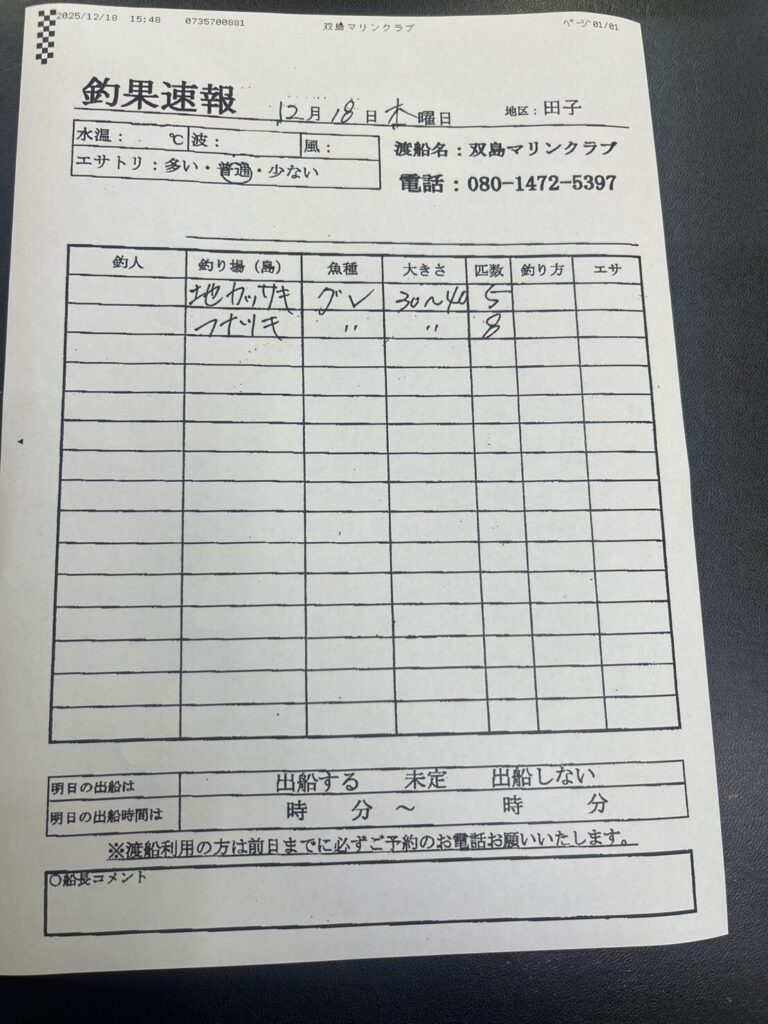 2025/12/18 15:48 0735700881 双島マリンクラブ ページ 01/01
釣果速報 12月18日木曜日 地区：田子
水温： ℃ 波： 風：
エサトリ：多い・普通・少ない
渡船名：双島マリンクラブ
電話：080-1472-5397
釣人 釣り場（島） 魚種 大きさ 匹数 釣り方 エサ
地カッサキ グレ 30〜40 5
フナツキ 〃 〃 8
明日の出船は 出船する 未定 出船しない
明日の出船時間は 時 分 〜 時 分
※渡船利用の方は前日までに必ずご予約のお電話お願いいたします。
○船長コメント